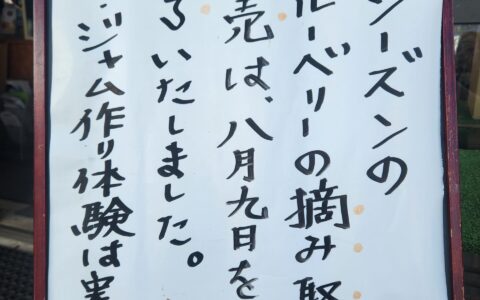 シーズンの
ルーベリーの摘み取
売は、八月九日を
いたしました。
ジャム作り体験は実